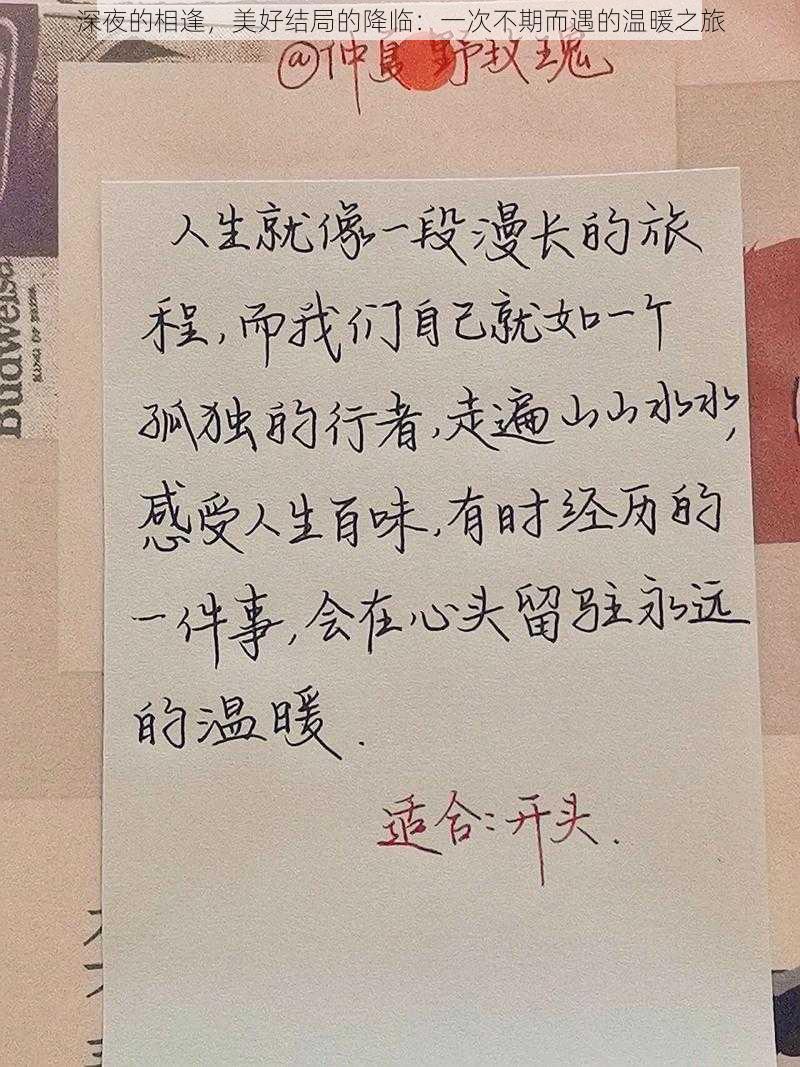 深夜的相逢，美好结局的降临：一次不期而遇的温暖之旅
@仲夏野玫瑰
人生就像一段漫长的旅
程,而我们自己就如一个
孤独的行者,走遍山山水水,
感受人生百味,有时经历的
一件事,会在心头留驻永远
的温暖.
适合:开头.
Budweiser